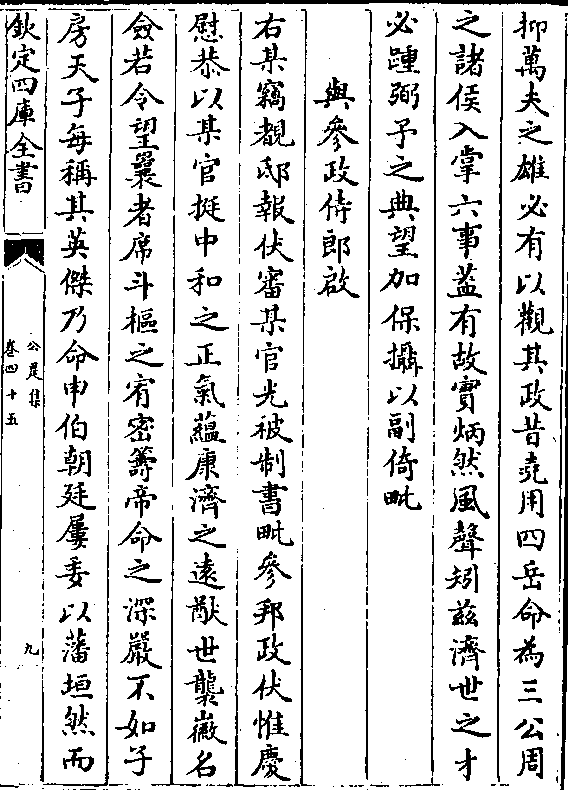 抑萬夫之雄必有以觀其政昔堯用四岳命為三公周
之諸侯入掌六事葢有故實炳然風聲矧兹濟世之才
必踵弼予之典望加保攝以副倚毗
與參政侍郎啟
右某竊覩邸報伏審某官光被制書毗參邦政伏惟慶
慰恭以某官挺中和之正氣藴康濟之逺猷世襲徽名
僉若令望曩者席斗樞之宥密籌帝命之深嚴不如子
房天子每稱其英傑乃命申伯朝廷屢委以藩垣然而
欽定四庫全書
公是集
卷四十五
九